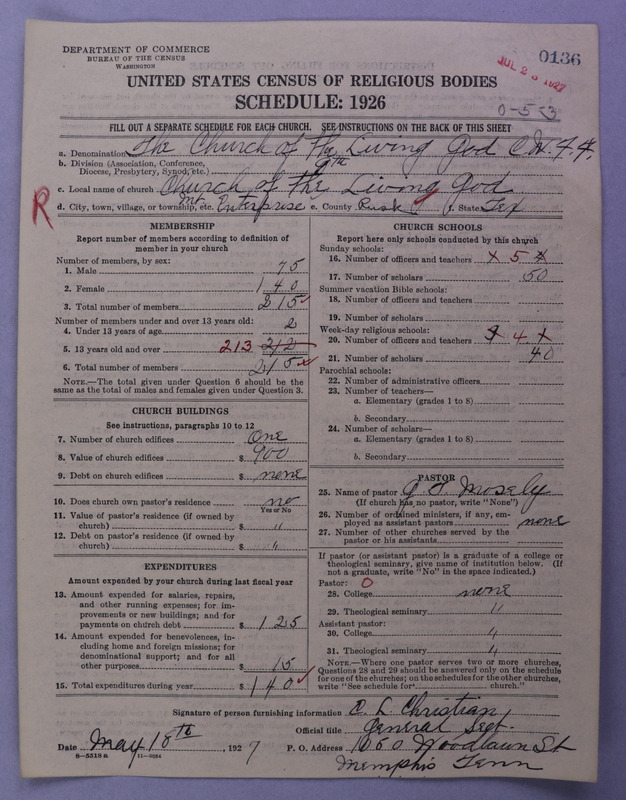 DEPARTMENT OF COMMERCE
BUREAU OF THE CENSUS
WASHINGTON
0136
JUL 2 1927
UNITED STATES CENSUS OF RELIGIOUS BODIES
SCHEDULE: 1926
0-5<3
FILL OUT A SEPARATE SCHEDULE FOR EACH CHURCH. SEE INSTRUCTIONS ON THE BACK OF THIS SHEET
a. Denomination The Church of the Living God C.W.F.F.
b. Division (Association, Conference, Diocese, Presbytery, Synod, etc.)
c. Local name of church Church of the Living God
d. City, town, village, or township, etc. Mt. Enterprise e. County Rusk f. State Tex
R
MEMBERSHIP
Report number of members according to definition of member in your church
Number of members, by sex:
1. Male 75
2. Female 140
3. Total number of members 215
Number of members under and over 13 years old:
4. Under 13 years of age 2
5. 13 years old and over 213 212
6. Total number of members 215
NOTE.—The total given under Question 6 should be same as the total of males and females given under Question 3.
CHURCH BUILDINGS
See instructions, paragraphs 10 to 12
7. Number of church edifices One
8. Value of church edifices $ 900
9. Debt on church edifices $ none
10. Does church own pastor's residence no
Yes or No
11. Value of pastor's residence (if owned by church) $ "
12. Debt on pastor's residence (if owned by church) $ "
EXPENDITURES
Amount expended by your church during last fiscal year
13. Amount expended for salaries, repairs, and other running expenses; for improvements or new buildings; and for payments on church debt $ 125
14. Amount expended for benevolences, including home and foreign missions; for denominational support; and for all other purposes $ 15
15. Total expenditures during year $ 140
CHURCH SCHOOLS
Report here only schools conducted by this church
Sunday schools:
16. Number of officers and teachers 5
17. Number of scholars 50
Summer vacation Bible schools:
18. Number of officers and teachers
19. Number of scholars
Week-day religious schools:
20. Number of officers and teachers 4
21. Number of scholars 40
Parochial schools:
22. Number of administrative officers
23. Number of teachers—
a. Elementary (grades 1 to 8)
b. Secondary
24. Number of scholars—
a. Elementary (grades 1 to 8)
b. Secondary
PASTOR
25. Name of pastor Mosely
(If church has no pastor, write "None")
26. Number of ordained ministers, if any, employed as assistant pastors none
27. Number of other churches served by the pastor or his assistants
If pastor (or assistant pastor) is a graduate of a college or theological seminary, give name of institution below. (If not a graduate, write "No" in the space indicated.)
Pastor: O
28. College none
29. Theological seminary "
Assistant pastor:
30. College "
31. Theological seminary "
NOTE.—Where one pastor serves two or more churches, Questions 28 and 29 should be answered only on the schedule for one of the churches; on the schedules for the other churches, write "See schedule for church."
Signature of person furnishing information C. L. Christian
Official title General Sect.
Date May 18th, 1927 P. O. Address 1060 Woodlawn St
Memphis Tenn
8—5518 a 11—9054